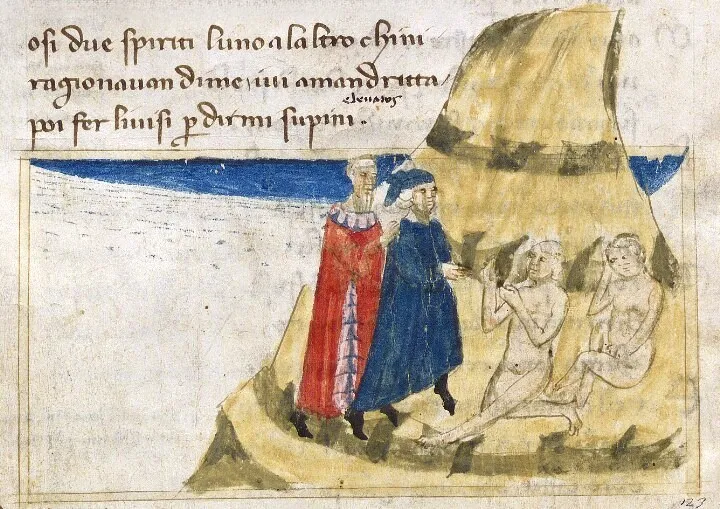 osi due spiriti luno alaltro chini
ragionauan dime iui amandritta
eleuatos
poi fer liuisi ꝑ dirmi supini .
123